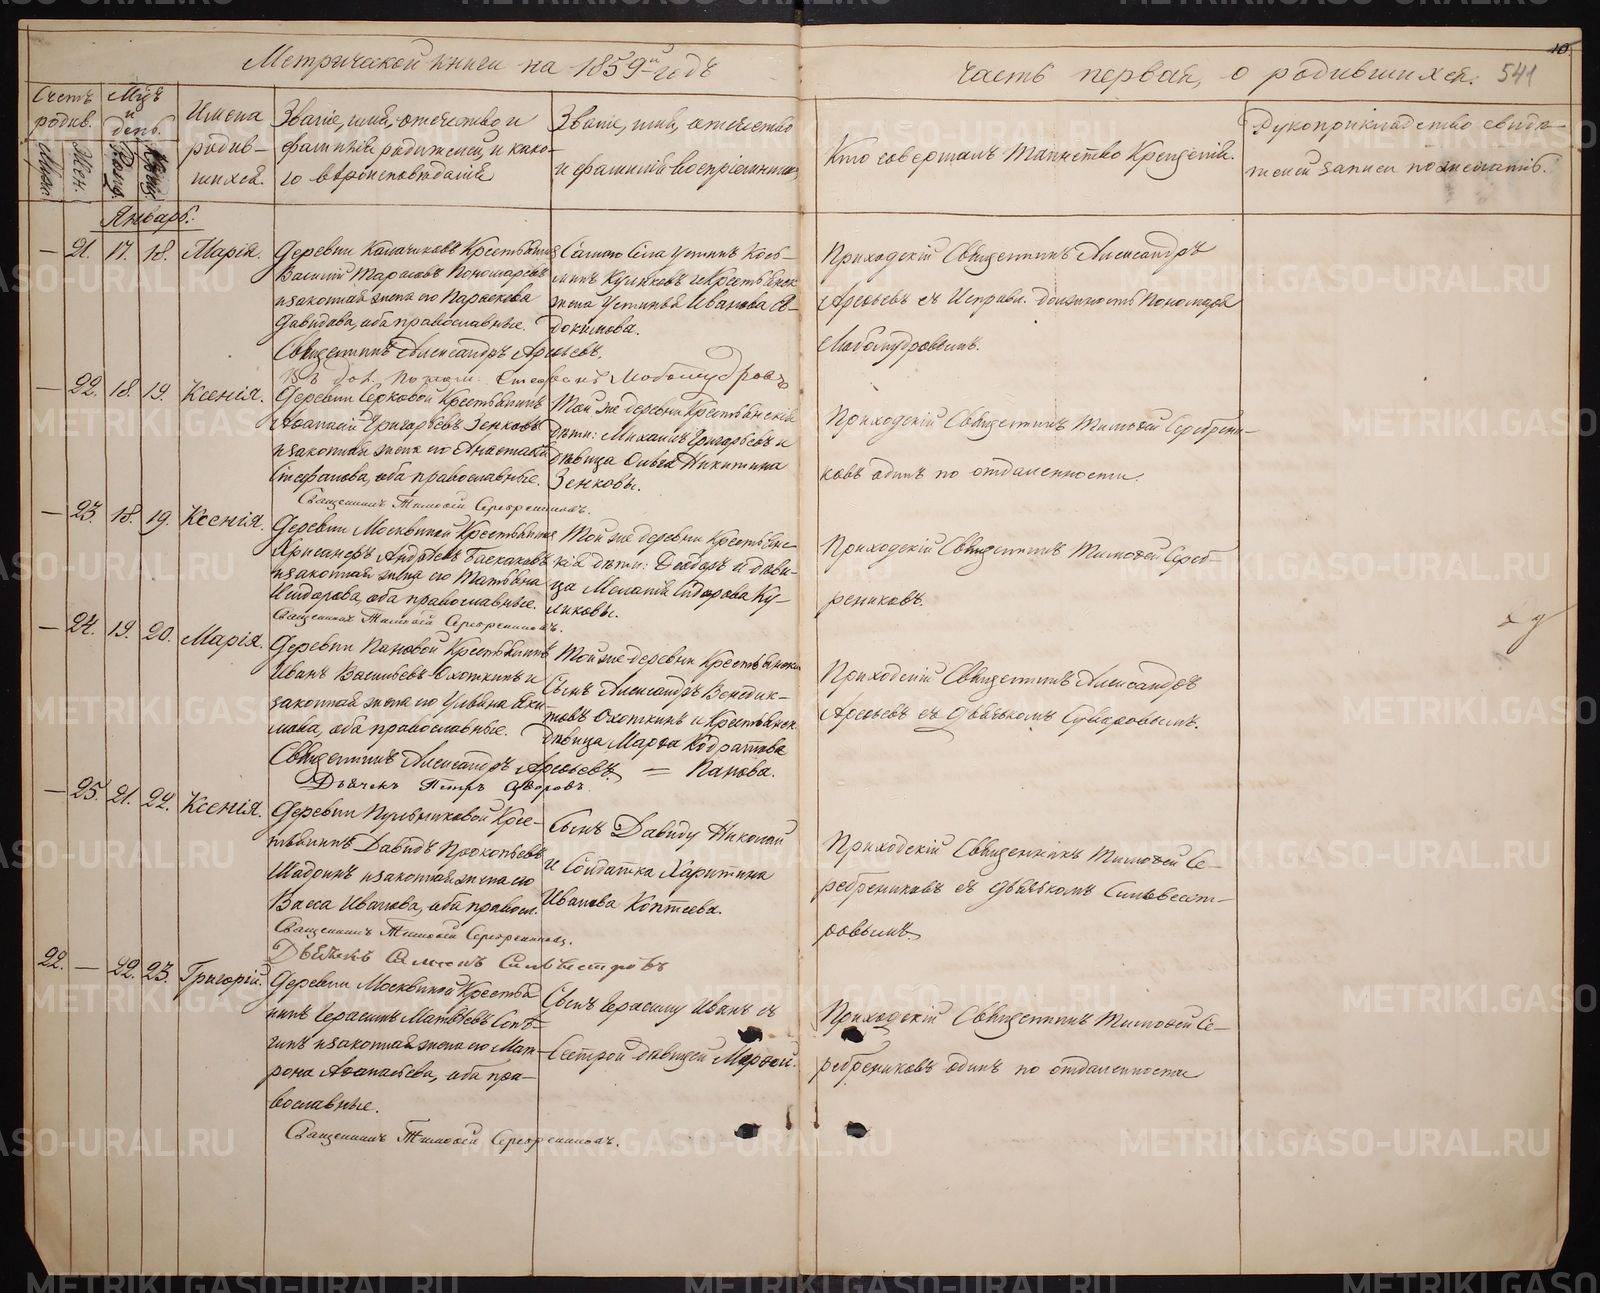 Метрической книги на 1859й годъ
часть первая, о родившихся. 541
10.
Счетъ родив.
Муж.
Жен.
Мѣс. и день.
Рожд.
Крещ.
Имена родив-
шихся.
Званіе, имя, отечество и
фамилія родителей, и како-
го вѣроисповѣданія
Званіе, имя, отечество
и фамилія воспріемниковъ
Кто совершалъ таинство Крещенія.
Рукоприкладство свидѣ-
телей записи по желанію.
Январь.
— 21. 17. 18. Марія.
Деревни Крестьянинъ
Василій Тарасовъ Пономаревъ
и законная жена его Параскева
Давидова, оба православные.
Священникъ Александръ Арефьевъ.
Въ дол. поном. Стефанъ Любомудровъ
Сынъ Козь-
миныхъ Куликовъ и Крестьянск.
жена Устинья Иванова Ев-
докимова.
Приходскій Священникъ Александръ
Арефьевъ съ Исправ. должность Пономаря
Любомудровымъ.
— 22. 18. 19. Ксенія.
Деревни Серковой Крестьянинъ
Афанасій Григорьевъ Зенковъ
и законная жена его Анастасія
Стефанова, оба православные.
Священникъ Тимофей Серебрениковъ.
Той же деревни Крестьянскія
дѣти: Михаилъ Григорьевъ и
дѣвица Ольга Никитина
Зенковы.
Приходскій Священникъ Тимофей Серебрени-
ковъ одинъ по отдаленности.
— 23. 18. 19. Ксенія.
Деревни Москвиной Крестьянинъ
Александръ Андреевъ
и законная жена его Татьяна
Исидорова, оба православные.
Священникъ Тимофей Серебрениковъ.
Той же деревни Крестьянс-
кія дѣти: Ѳеодоръ и дѣви-
ца Меланія Сидорова Ку-
ликовы.
Приходскій Священникъ Тимофей Сереб-
рениковъ.
— 24. 19. 20. Марія.
Деревни Пановой Крестьянинъ
Иванъ Васильевъ Охоткинъ и
законная жена его Ульяна Яки-
мова, оба православные.
Священникъ Александръ Арефьевъ
Дьячекъ Петръ Суворовъ.
Той же деревни Крестьянскій
Сынъ Александръ Венедик-
товъ Охоткинъ и Крестьянск.
дѣвица Марѳа Кодратова
= Панова.
Приходскій Священникъ Александръ
Арефьевъ съ Дьячькомъ Суворовымъ.
— 25. 21. 22. Ксенія.
Деревни Пульниковой Крес-
тьянинъ Давидъ Прокопьевъ
Шадринъ и законная жена его
Васса Иванова, оба правосл.
Священникъ Тимофей Серебрениковъ.
Дьячекъ Симеонъ Сильвестровъ
Сынъ Давиду Николай
и Солдатка Харитина
Иванова Коптеева.
Приходскій Священникъ Тимофей Се-
ребрениковъ съ Дьячькомъ Сильвест-
ровымъ.
22. — 22. 23. Григорій.
Деревни Москвиной Крестья-
нинъ Герасимъ Матвѣевъ
и законная жена его Мат-
рона Афанасьева, оба пра-
вославные.
Священникъ Тимофей Серебрениковъ.
Сынъ Герасиму Иванъ съ
Сестрой дѣвицей Марѳой.
Приходскій Священникъ Тимофей Се-
ребрениковъ одинъ по отдаленности
METRIKI.GASO-URAL.RU